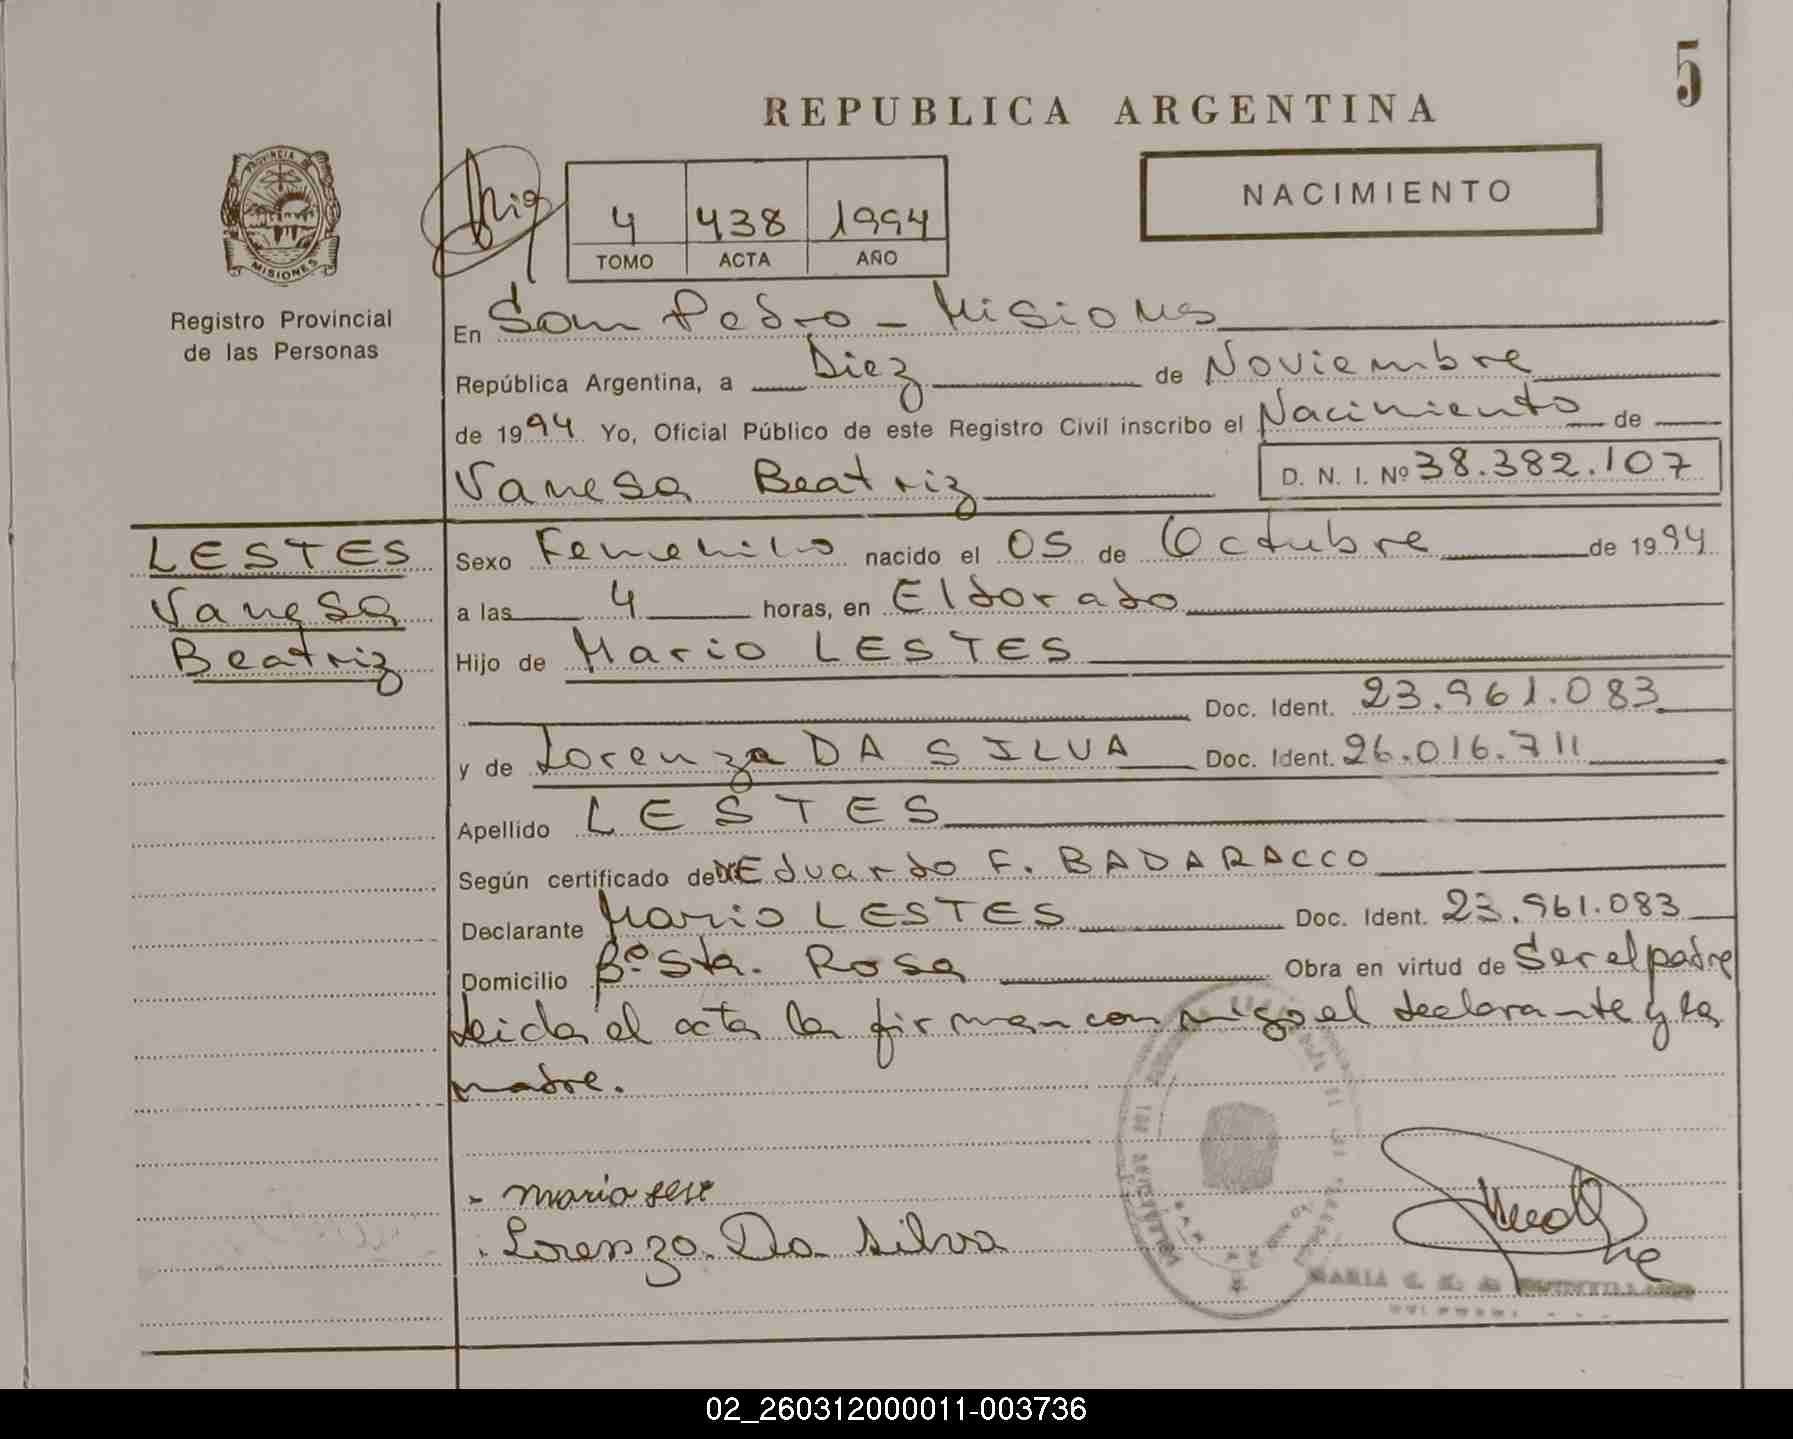 5
REPUBLICA ARGENTINA
NACIMIENTO
PROVINCIA DE
MISIONES
Registro Provincial
de las Personas
4 438 1994
TOMO ACTA AÑO
En San Pedro - Misiones
República Argentina, a Diez de Noviembre
de 1994 Yo, Oficial Público de este Registro Civil inscribo el Nacimiento de
Vanesa Beatriz D. N. I. Nº 38.382.107
LESTES
Vanesa
Beatriz
Sexo Femenino nacido el 05 de Octubre de 1994
a las 4 horas, en Eldorado
Hijo de Mario LESTES
Doc. Ident. 23.961.083
y de Lorenza DA SILVA Doc. Ident. 26.016.711
Apellido LESTES
Según certificado de Eduardo F. BADARACCO
Declarante Mario LESTES Doc. Ident. 23.961.083
Domicilio Bº Sta. Rosa Obra en virtud de Ser el padre
Leida el acta la firman conmigo el declarante y la
madre.
- mario
Lorenza Da Silva
MARIA
02_260312000011-003736